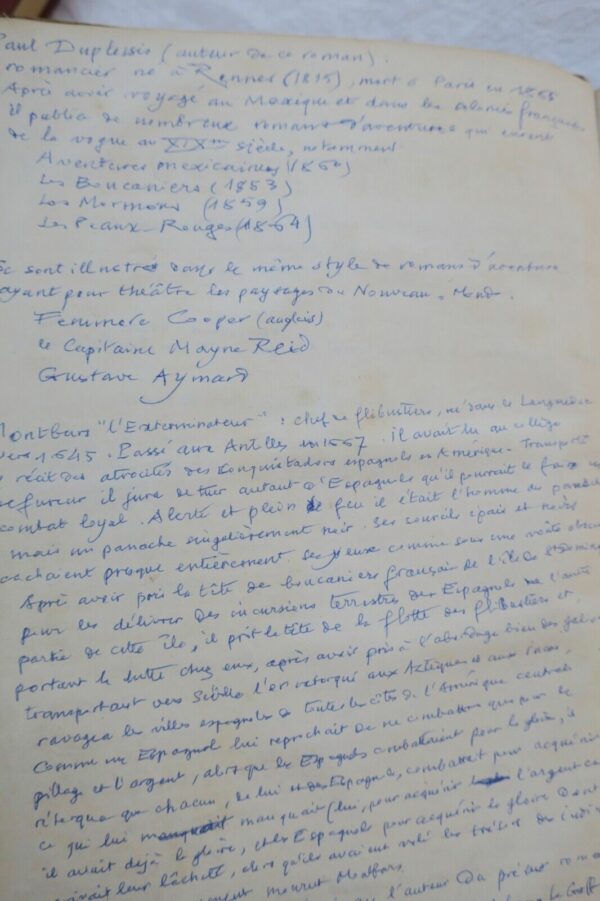 Paul Duplessis (auteur de ce roman) :
romancier né à Rennes (1815), mort à Paris en 1865
Après avoir voyagé au Mexique et dans les colonies françaises
il publia de nombreux romans d'aventures qui eurent
de la vogue au XIXme siècle, notamment
Aventures mexicaines (1860)
Les Boucaniers (1853)
Les Mormons (1859)
Les Peaux-Rouges (1864)
Se sont illustrés dans le même style de romans d'aventure
ayant pour théâtre les paysages du Nouveau-Monde.
Fenimore Cooper (anglais)
le Capitaine Mayne Reid
Gustave Aymard
Montbars "l'Exterminateur" : chef de flibustiers, né dans le Languedoc
vers 1645. Passé aux Antilles en 1667. Il avait lu au collège
récit des atrocités des Conquistadors espagnols en Amérique. Transporté
de fureur il jura de tuer autant d'Espagnols qu'il pourrait le faire
combat loyal. Alerte et plein de feu il était l'homme du
mais un panache singulièrement noir. Ses sourcils épais et noirs
cachaient presque entièrement ses yeux comme sous une voûte
Après avoir pris la tête de boucaniers français de l'île de St Domingue
pour les délivrer des incursions terrestres des Espagnols de l'autre
partie de cette île, il prit la tête de la flotte des flibustiers et,
portant la lutte chez eux, après avoir pris à l'abordage bien des
transportant vers Séville l'or extorqué aux Aztèques et aux Incas,
ravagea les villes espagnoles de toutes les côtes de l'Amérique centrale
Comme un Espagnol lui reprochait de ne combattre que pour le
pillage et l'argent, alors que les Espagnols combattaient pour la gloire, il
rétorqua que chacun, de lui et des Espagnols, combattait pour acquérir
ce qui lui manquait (lui, pour acquérir l'argent car
il avait déjà la gloire, et les Espagnols pour acquérir la gloire dont
leur lâcheté, alors qu'ils avaient volé les trésors des
mourut
l'auteur du présent roman